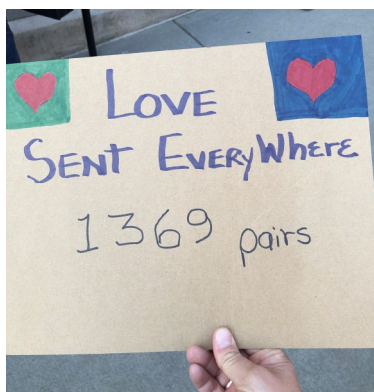 LOVE
SENT EVERYWhERE
1369 pairs